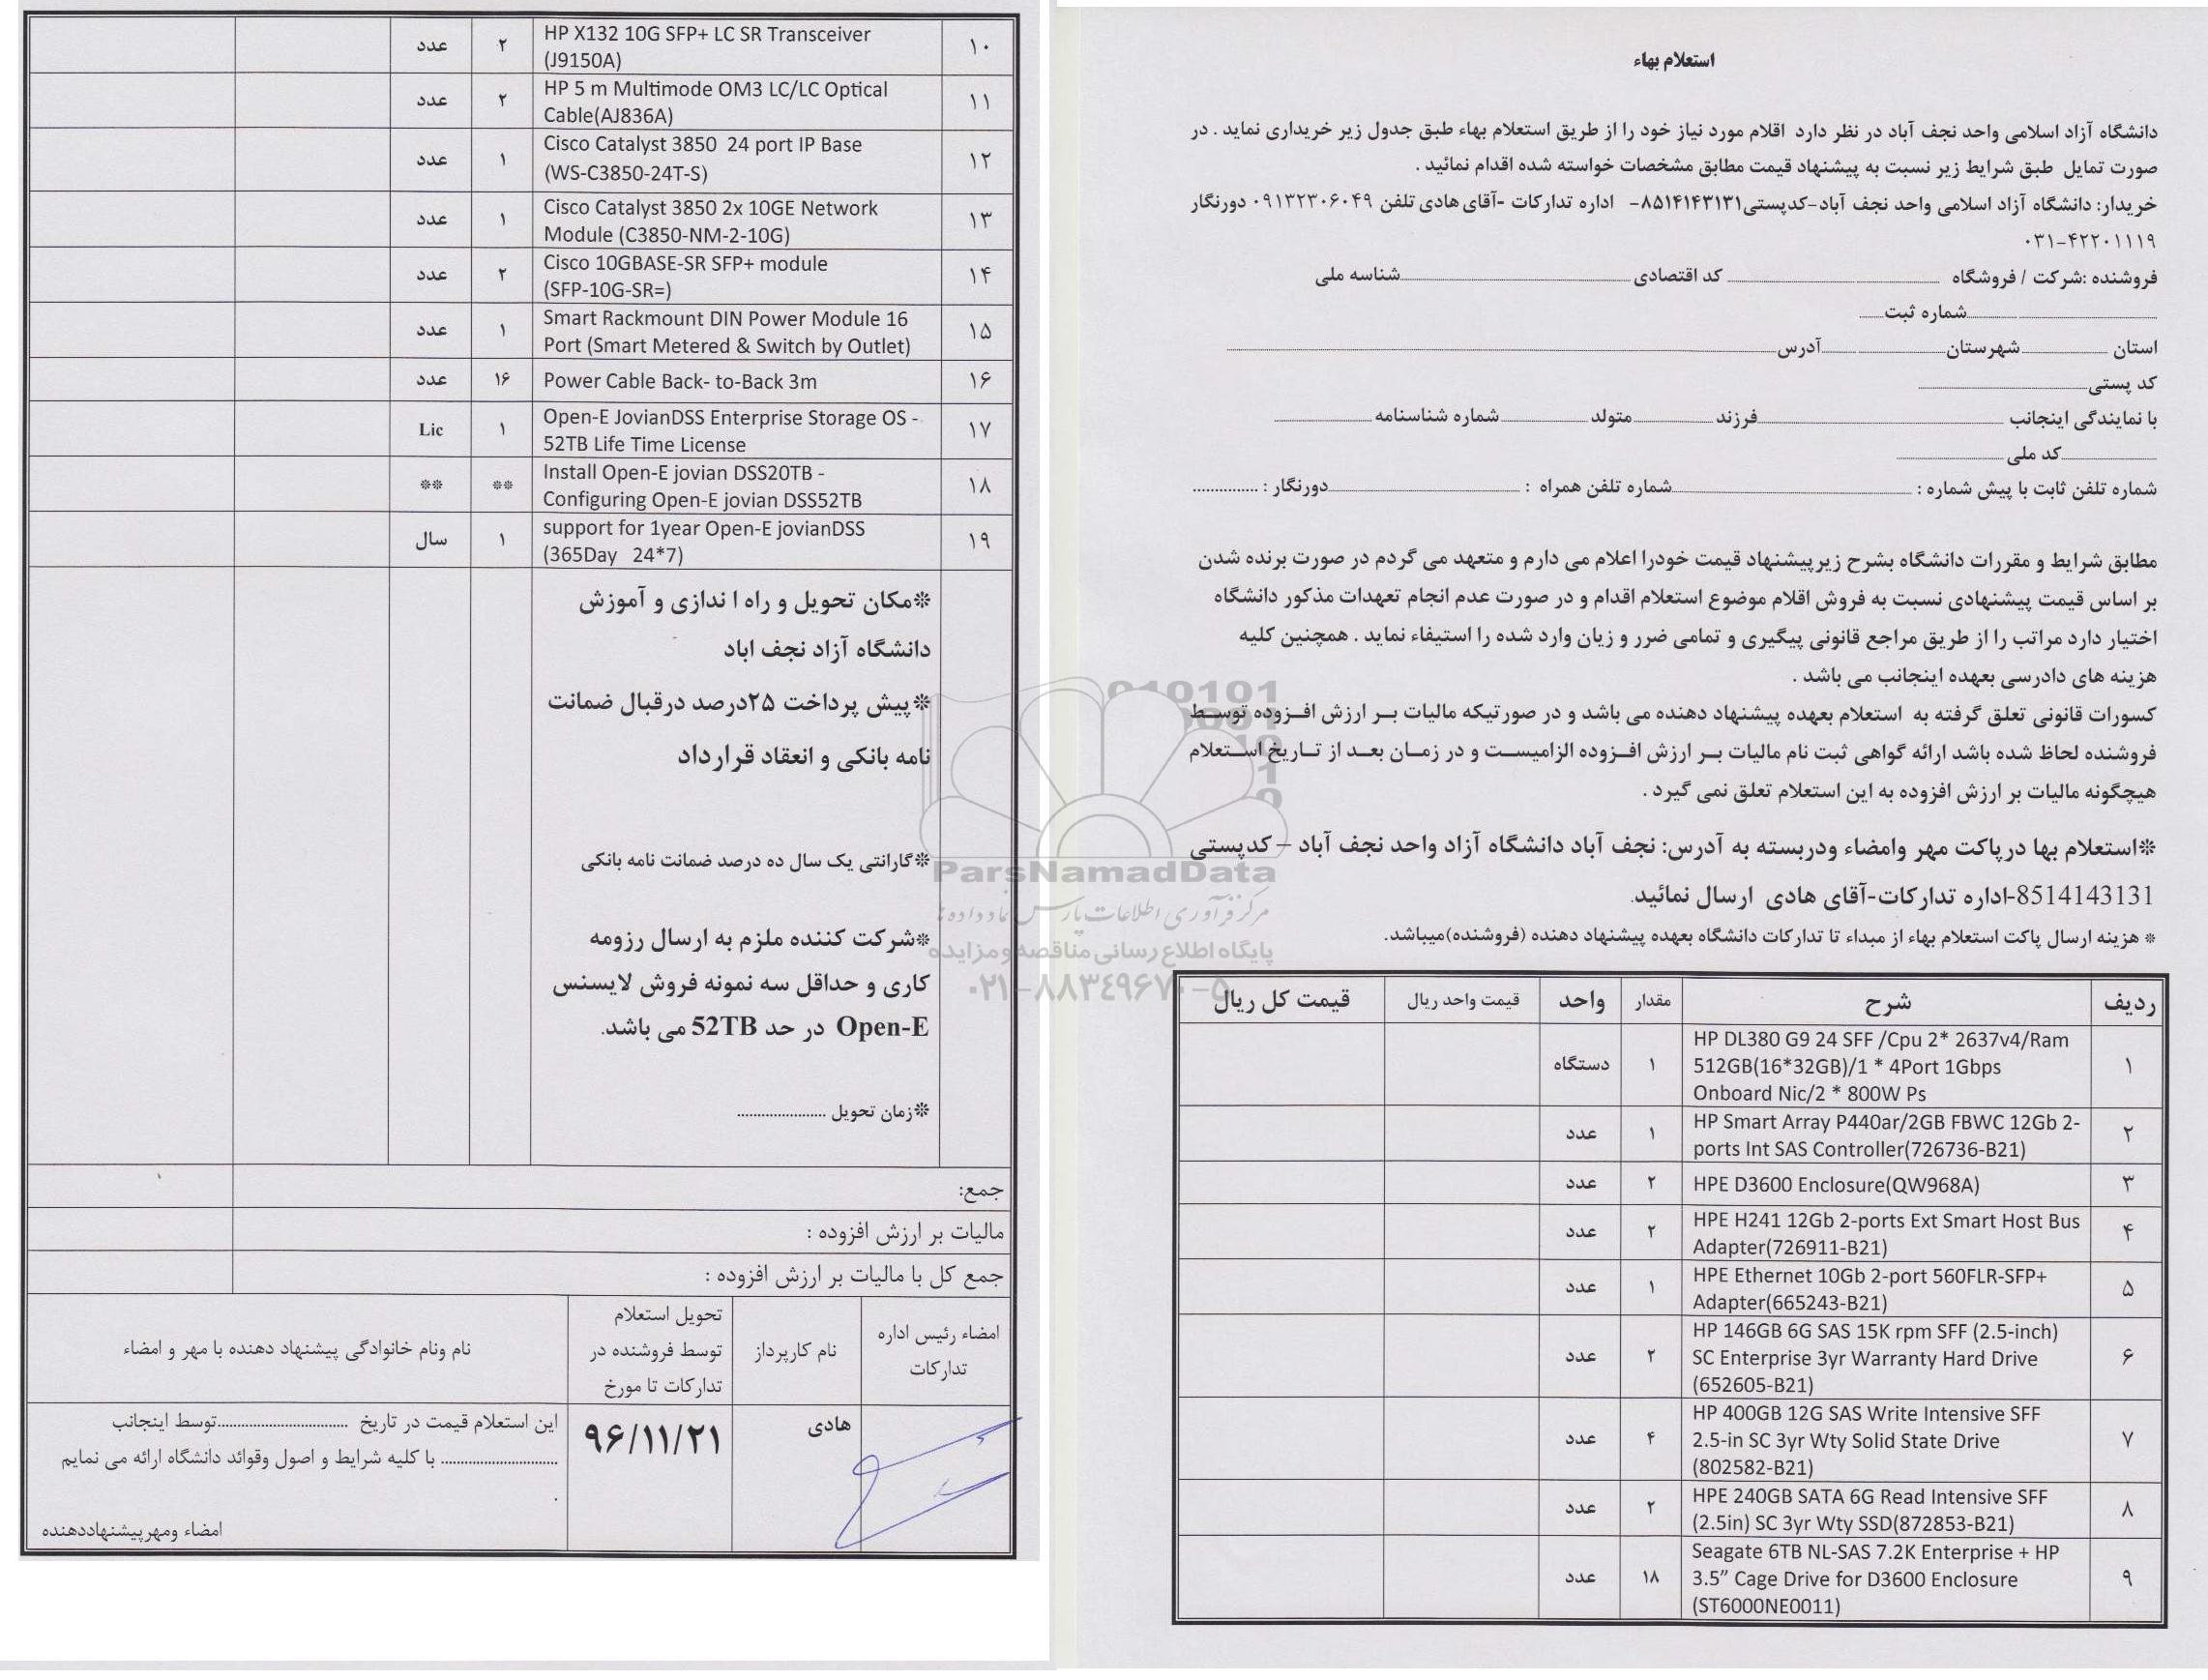 استعلام بهاء
دانشگاه آزاد اسلامی واحد نجف آباد در نظر دارد اقلام مورد نیاز خود را از طریق استعلام بهاء طبق جدول زیر خریداری نماید . در
صورت تمایل طبق شرایط زیر نسبت به پیشنهاد قیمت مطابق مشخصات خواسته شده اقدام نمائید .
خریدار: دانشگاه آزاد اسلامی واحد نجف آباد-کدپستی۸۵۱۴۱۴۳۱۳۱- اداره تدارکات -آقای هادی تلفن ۰۹۱۳۲۳۰۶۰۴۹ دورنگار
۰۳۱-۴۲۲۰۱۱۱۹
فروشنده :شرکت / فروشگاه ........ کد اقتصادی ........شناسه ملی
........شماره ثبت........
استان ........شهرستان........آدرس........
کد پستی........
با نمایندگی اینجانب ........فرزند ........متولد ........شماره شناسنامه ........
........کد ملی ........
شماره تلفن ثابت با پیش شماره : ........شماره تلفن همراه : ........دورنگار : ..............
مطابق شرایط و مقررات دانشگاه بشرح زیرپیشنهاد قیمت خودرا اعلام می دارم و متعهد می گردم در صورت برنده شدن
بر اساس قیمت پیشنهادی نسبت به فروش اقلام موضوع استعلام اقدام و در صورت عدم انجام تعهدات مذکور دانشگاه
اختیار دارد مراتب را از طریق مراجع قانونی پیگیری و تمامی ضرر و زیان وارد شده را استیفاء نماید . همچنین کلیه
هزینه های دادرسی بعهده اینجانب می باشد .
کسورات قانونی تعلق گرفته به استعلام بعهده پیشنهاد دهنده می باشد و در صورتیکه مالیات بر ارزش افزوده توسط
فروشنده لحاظ شده باشد ارائه گواهی ثبت نام مالیات بر ارزش افزوده الزامیست و در زمان بعد از تاریخ استعلام
هیچگونه مالیات بر ارزش افزوده به این استعلام تعلق نمی گیرد .
*استعلام بها درپاکت مهر وامضاء ودربسته به آدرس: نجف آباد دانشگاه آزاد واحد نجف آباد – کدپستی
8514143131-اداره تدارکات-آقای هادی ارسال نمائید.
* هزینه ارسال پاکت استعلام بهاء از مبداء تا تدارکات دانشگاه بعهده پیشنهاد دهنده (فروشنده)میباشد.
ردیف شرح مقدار واحد قیمت واحد ریال قیمت کل ریال
۱ HP DL380 G9 24 SFF /Cpu 2* 2637v4/Ram
512GB(16*32GB)/1 * 4Port 1Gbps
Onboard Nic/2 * 800W Ps ۱ دستگاه
۲ HP Smart Array P440ar/2GB FBWC 12Gb 2-
ports Int SAS Controller(726736-B21) ۱ عدد
۳ HPE D3600 Enclosure(QW968A) ۲ عدد
۴ HPE H241 12Gb 2-ports Ext Smart Host Bus
Adapter(726911-B21) ۲ عدد
۵ HPE Ethernet 10Gb 2-port 560FLR-SFP+
Adapter(665243-B21) ۱ عدد
۶ HP 146GB 6G SAS 15K rpm SFF (2.5-inch)
SC Enterprise 3yr Warranty Hard Drive
(652605-B21) ۲ عدد
۷ HP 400GB 12G SAS Write Intensive SFF
2.5-in SC 3yr Wty Solid State Drive
(802582-B21) ۴ عدد
۸ HPE 240GB SATA 6G Read Intensive SFF
(2.5in) SC 3yr Wty SSD(872853-B21) ۲ عدد
۹ Seagate 6TB NL-SAS 7.2K Enterprise + HP
3.5” Cage Drive for D3600 Enclosure
(ST6000NE0011) ۱۸ عدد
۱۰ HP X132 10G SFP+ LC SR Transceiver
(J9150A) ۲ عدد
۱۱ HP 5 m Multimode OM3 LC/LC Optical
Cable(AJ836A) ۲ عدد
۱۲ Cisco Catalyst 3850 24 port IP Base
(WS-C3850-24T-S) ۱ عدد
۱۳ Cisco Catalyst 3850 2x 10GE Network
Module (C3850-NM-2-10G) ۱ عدد
۱۴ Cisco 10GBASE-SR SFP+ module
(SFP-10G-SR=) ۲ عدد
۱۵ Smart Rackmount DIN Power Module 16
Port (Smart Metered & Switch by Outlet) ۱ عدد
۱۶ Power Cable Back- to-Back 3m ۱۶ عدد
۱۷ Open-E JovianDSS Enterprise Storage OS -
52TB Life Time License ۱ Lic
۱۸ Install Open-E jovian DSS20TB -
Configuring Open-E jovian DSS52TB ** **
۱۹ support for 1year Open-E jovianDSS
(365Day 24*7) ۱ سال
*مکان تحویل و راه ا ندازی و آموزش
دانشگاه آزاد نجف اباد
*پیش پرداخت ۲۵درصد درقبال ضمانت
نامه بانکی و انعقاد قرارداد
*گارانتی یک سال ده درصد ضمانت نامه بانکی
*شرکت کننده ملزم به ارسال رزومه
کاری و حداقل سه نمونه فروش لایسنس
Open-E در حد 52TB می باشد.
*زمان تحویل ......................
جمع:
مالیات بر ارزش افزوده :
جمع کل با مالیات بر ارزش افزوده :
امضاء رئیس اداره
تدارکات
نام کارپرداز
تحویل استعلام
توسط فروشنده در
تدارکات تا مورخ
نام ونام خانوادگی پیشنهاد دهنده با مهر و امضاء
هادی
۹۶/۱۱/۲۱
این استعلام قیمت در تاریخ ................................توسط اینجانب
............................. با کلیه شرایط و اصول وقوائد دانشگاه ارائه می نمایم
.
امضاء ومهرپیشنهاددهنده
ParsNamadData
مرکز فرآوری اطلاعات پارس نماد داده ها
پایگاه اطلاع رسانی مناقصه و مزایده
۰۲۱-۸۸۳۴۹۶۷۰-۵